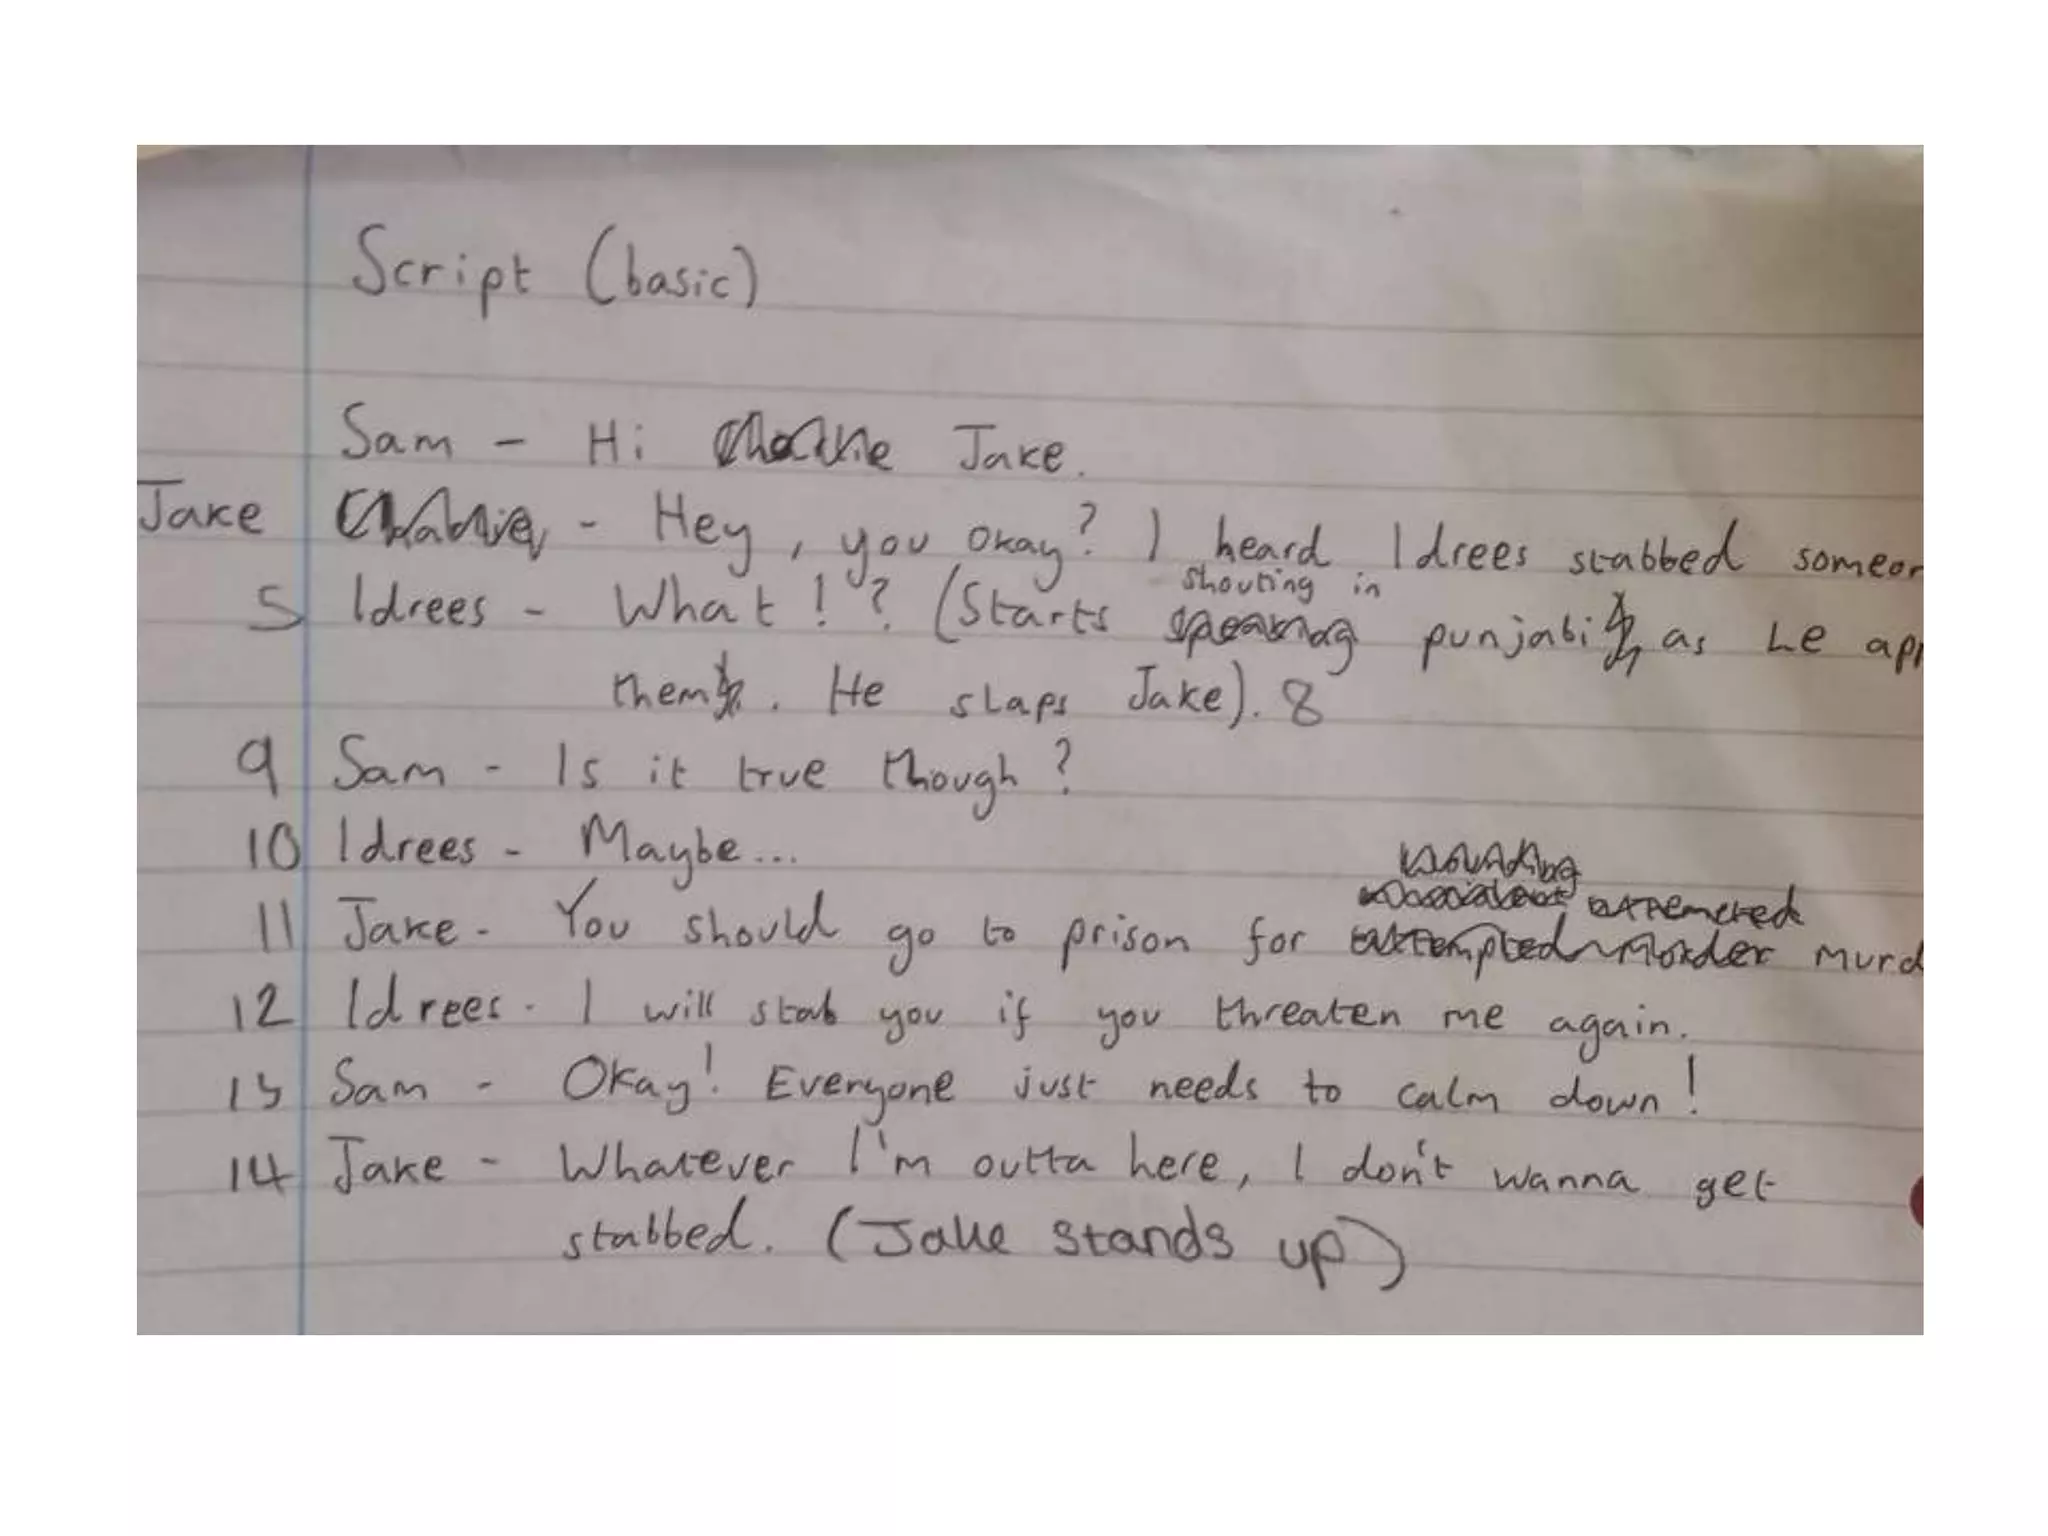 Script (basic)
Sam - Hi Jake.
Jake - Hey, you okay? I heard Idrees stabbed
shouting in
5 Idrees - What!? (Starts punjabi, as he
them. He slaps Jake). 8
9 Sam - Is it true though?
10 Idrees - Maybe...
11 Jake - You should go to prison for attempted
12 Idrees - I will stab you if you threaten me again.
13 Sam - Okay! Everyone just needs to calm down!
14 Jake - Whatever I'm outta here, I don't wanna get
stabbed. (Jake stands up)